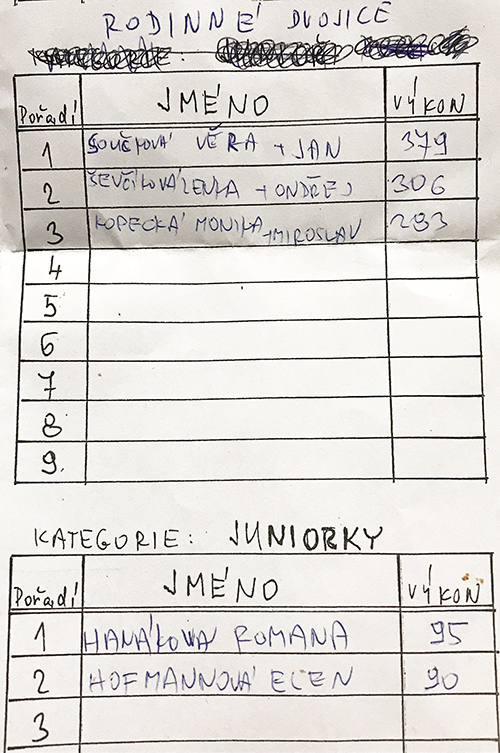 RODINNÉ DVOJICE
Pořadí JMÉNO VÝKON
1 SOUČKOVÁ VĚRA + JAN 379
2 ŠEVČÍKOVÁ LENKA + ONDŘEJ 306
3 KOPECKÁ MONIKA + MIROSLAV 293
4
5
6
7
8
9.
KATEGORIE: JUNIORKY
Pořadí JMÉNO VÝKON
1 HANÁKOVA ROMANA 95
2 HOFMANNOVÁ ELEN 90
3